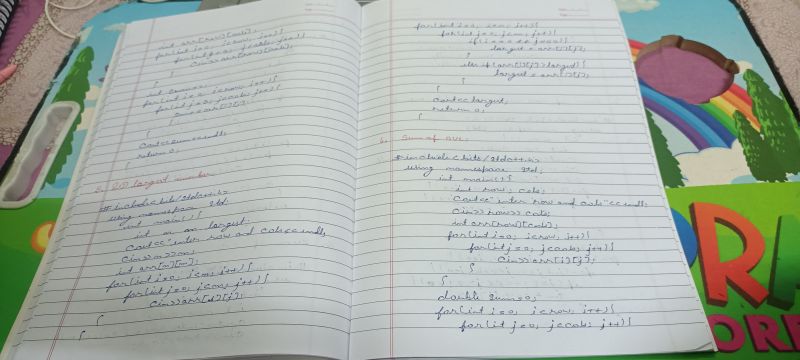 int arr[row][cols];
for(int i=0; i<row, i++){
for(int j=0; j<cols; j++){
cin>>arr[row][cols];
}
}
int sum=0;
for(int i=0; i<row, i++){
for(int j=0; j<cols, j++){
sum=arr[i][j];
}
}
cout<<sum<<endl;
return 0;
5. 2D largest number
#include<bits/stdc++.h>
using namespace std;
int main(){
int n, m, largest;
cout<<"enter row and cols<<endl;
cin>>n>>m;
int arr[n][m];
for(int i=0; i<n, i++){
for(int j=0; j<m, j++){
cin>>arr[i][j];
}
}
for(int i=0, i<n, i++){
for(int j=0, j<m, j++){
if(i==0 && j==0){
largest = arr[i][j];
}
else if(arr[i][j]>largest){
largest = arr[i][j];
}
}
}
cout<<largest;
return 0;
}
6. Sum of ave.
#include<bits/stdc++.h>
using namespace std;
int main(){
int row, cols;
cout<<"enter row and cols"<<endl;
cin>>row>>cols;
int arr[row][cols];
for(int i=0, i<row, i++){
for(int j=0, j<cols, j++){
cin>>arr[i][j];
}
}
double sum=0;
for(int i=0, i<row, i++){
for(int j=0, j<cols; j++){
RA
ORF